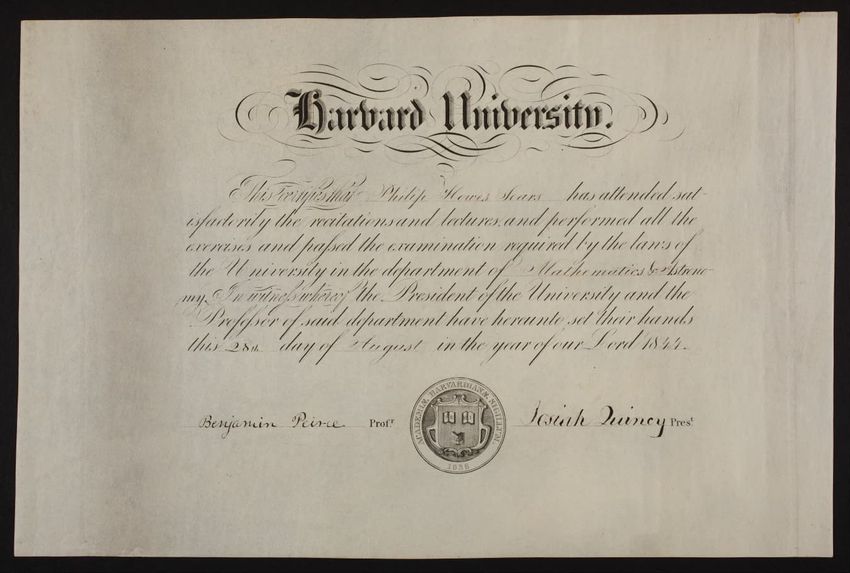 Harvard University.
This certifies that Philip Howes Sears has attended sat-
isfactorily the recitations and lectures, and performed all the
exercises and passed the examination required by the laws of
the University in the department of Mathematics & Astrono-
my. In witness whereof the President of the University and the
Professor of said department have hereunto set their hands
this 28th day of August in the year of our Lord 1844.
Benjamin Peirce Profr
ACADEMIÆ HARVARDIANÆ SIGILLUM
1636
Josiah Quincy Prest